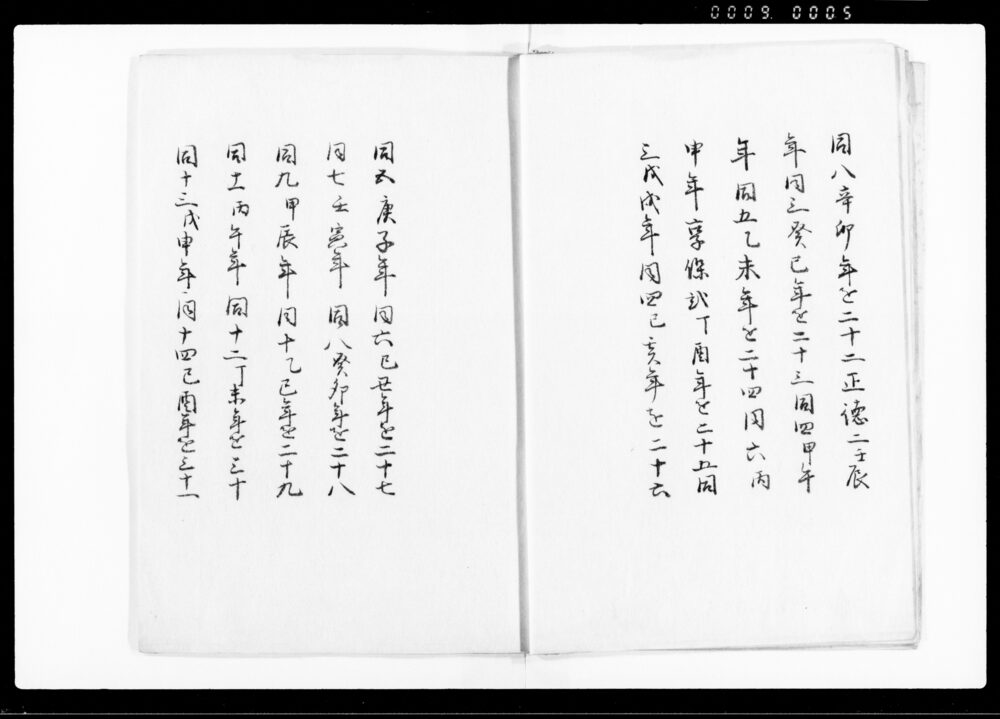 0009.0005
同八辛卯年を二十二正徳二壬辰
年同三癸巳年を二十三同四甲午
年同五乙未年を二十四同六丙
申年享保弐丁酉年を二十五同
三戊戌年同四己亥年を二十六
同五庚子年同六己丑年を二十七
同七壬寅年同八癸卯年を二十八
同九甲辰年同十乙巳年を二十九
同十一丙午年同十二丁未年を三十
同十三戊申年同十四己酉年を三十一